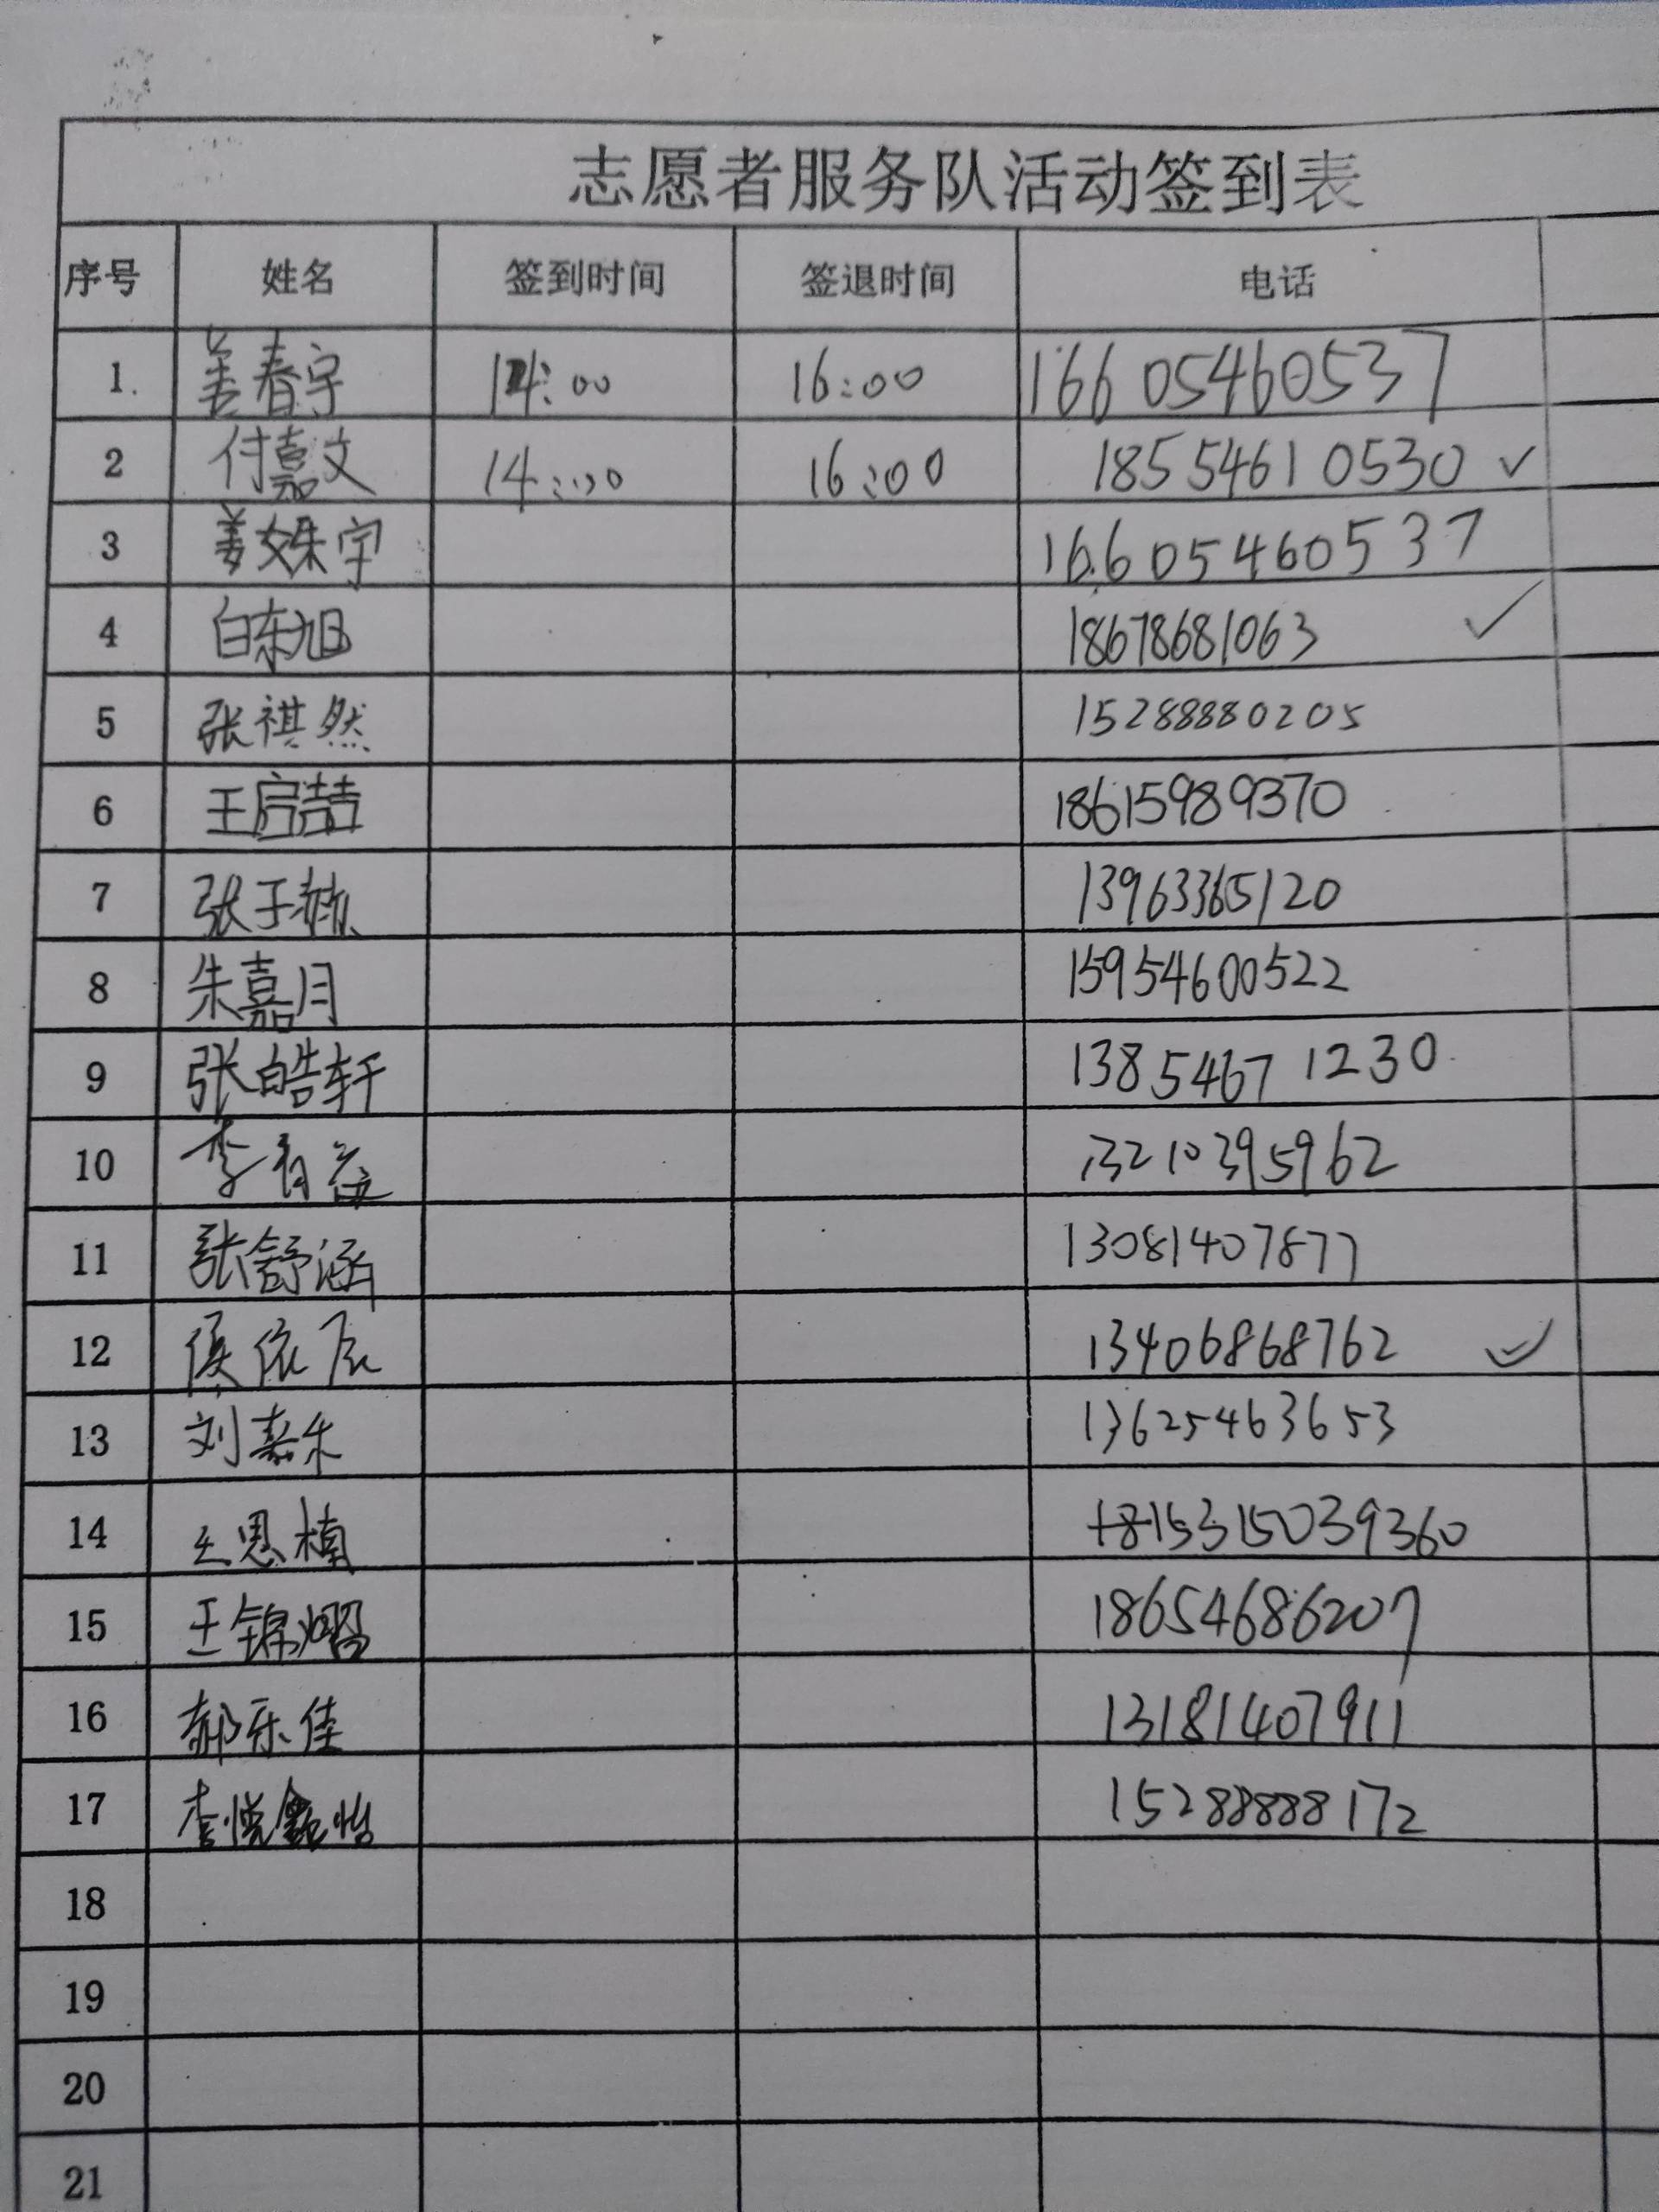 志愿者服务队活动签到表
序号 姓名 签到时间 签退时间 电话
1. 姜春宇 14:00 16:00 16605460537
2 付嘉文 14:00 16:00 18554610530 ✓
3 姜姝宇 16605460537
4 白东旭 18678681063 ✓
5 张祺然 15288880205
6 王启喆 18615989370
7 张于赫 13963365120
8 朱嘉月 15954600522
9 张皓轩 13854671230
10 李有益 13210395962
11 张舒涵 13081407877
12 侯依辰 13406868762 ✓
13 刘嘉乐 13625463653
14 王恩楠 15315039360
15 王锦熠 18654686207
16 郝乐佳 13181407911
17 李悦怡 15288888172
18
19
20
21